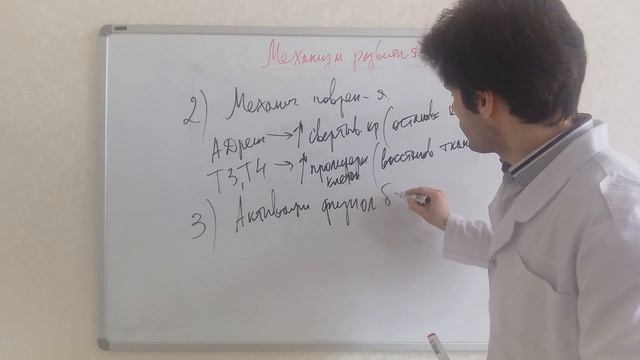 Механизм развития
2) Механ. повреж-я.
АДрен → ↑ свертыв. кр (останов
Т3, Т4 → ↑ пролифер клеток (восстанов ткан
3) Активация физиол б